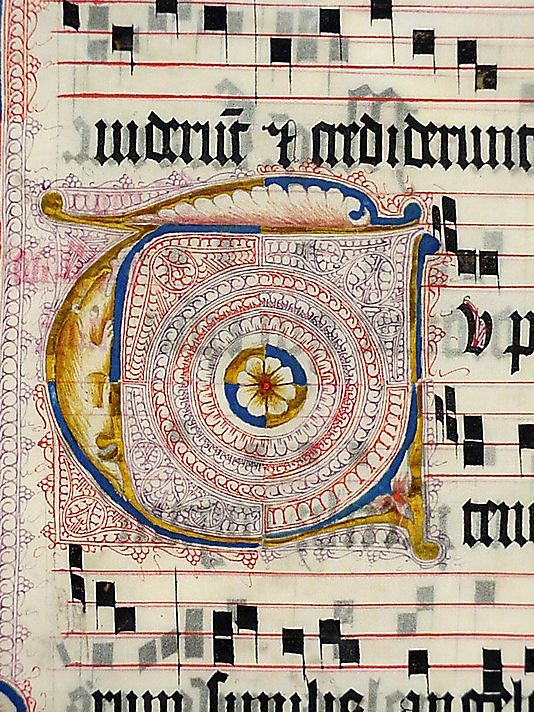 uiderūt ⁊ crediderunt
v p
tenu
rum similis angel